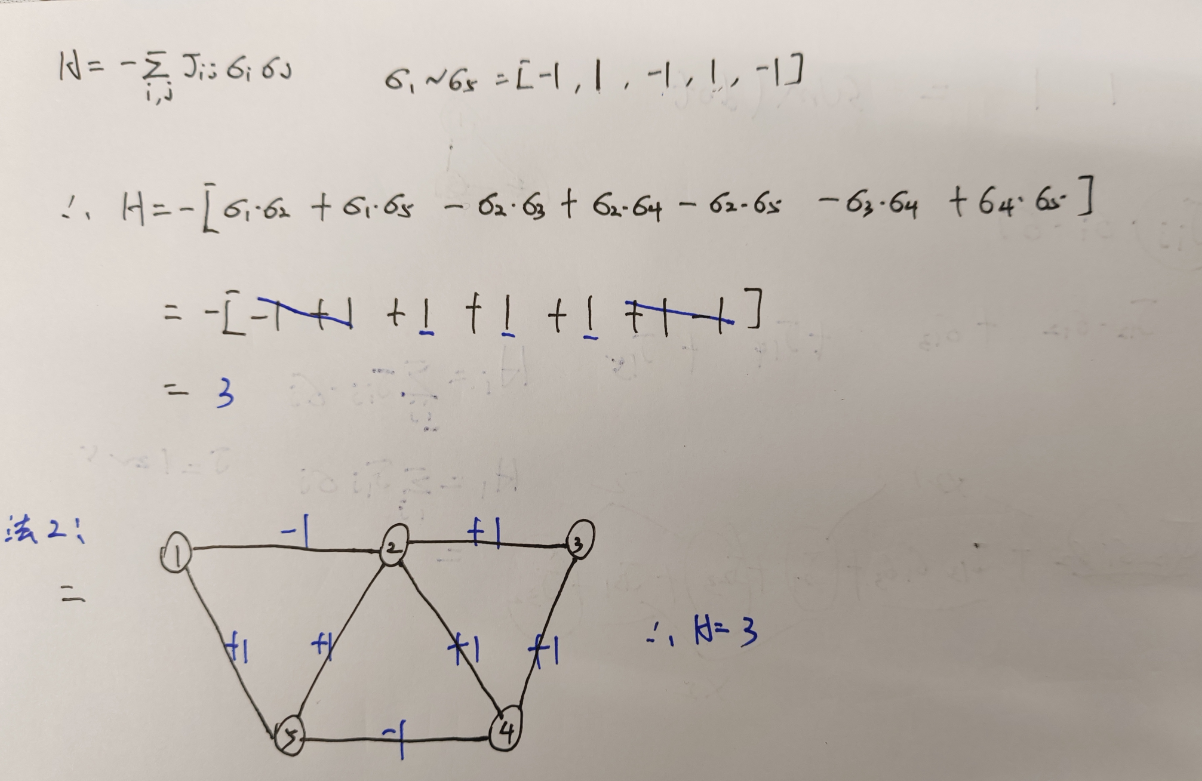 H = -∑ Jij σi σj    σ1~σ5 = [-1, 1, -1, 1, -1]
i,j
∴ H = -[σ1·σ2 + σ1·σ5 - σ2·σ3 + σ2·σ4 - σ2·σ5 - σ3·σ4 + σ4·σ5]
= -[-1 +1 +1 +1 +1 +1 -1]
= 3
法2:
1 -1 2 +1 3
=
+1 +1 +1 +1 ∴ H = 3
5 -1 4